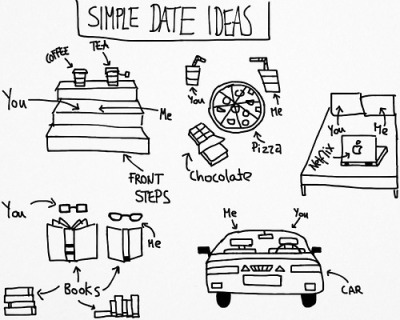 SIMPLE DATE IDEAS
COFFEE
TEA
You
Me
FRONT
STEPS
You
Me
Pizza
Chocolate
You
Me
Netflix
You
Me
Books
Me
You
CAR